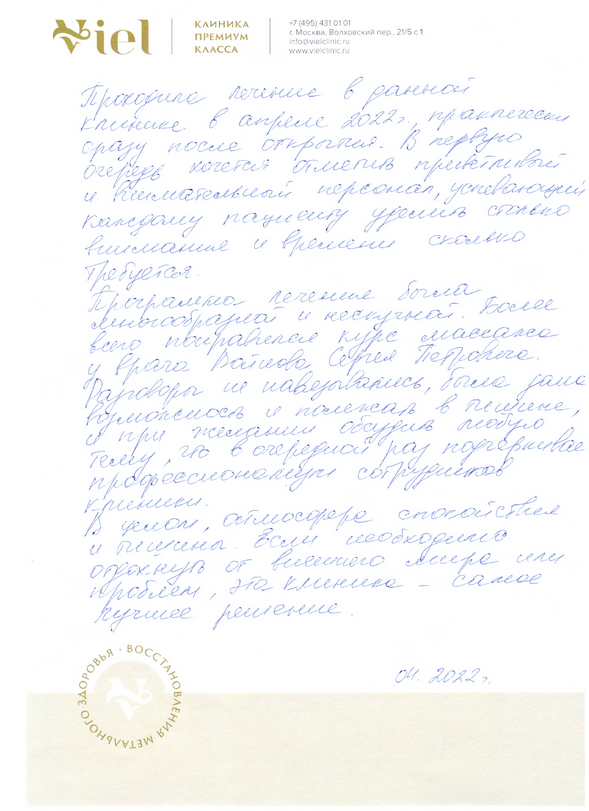 Viel
КЛИНИКА
ПРЕМИУМ
КЛАССА
+7 (495) 431 01 01
г. Москва, Волховский пер., 21/5 с 1
info@vielclinic.ru
www.vielclinic.ru
Проходила лечение в данной
клинике в апреле 2022г., практически
сразу после открытия. В первую
очередь хочется отметить приветливый
и внимательный персонал, успевающий
каждому пациенту уделить столько
внимания и времени сколько
требуется.
Программа лечения была
многообразной и нескучной. Более
всего понравился курс массажа
у врача Сергея Петровича.
Разговоры не навязывались, была дана
возможность и полежать в тишине,
и при желании обсудить любую
тему, что в очередной раз подчеркивае
профессионализм сотрудников
клиники.
В целом, атмосфера спокойствия
и тишины. Если необходимо
отдохнуть от внешнего мира или
проблем, эта клиника – самое
лучшее решение.
04. 2022г.
ВОССТАНОВЛЕНИЯ МЕТАЛЬНОГО ЗДОРОВЬЯ